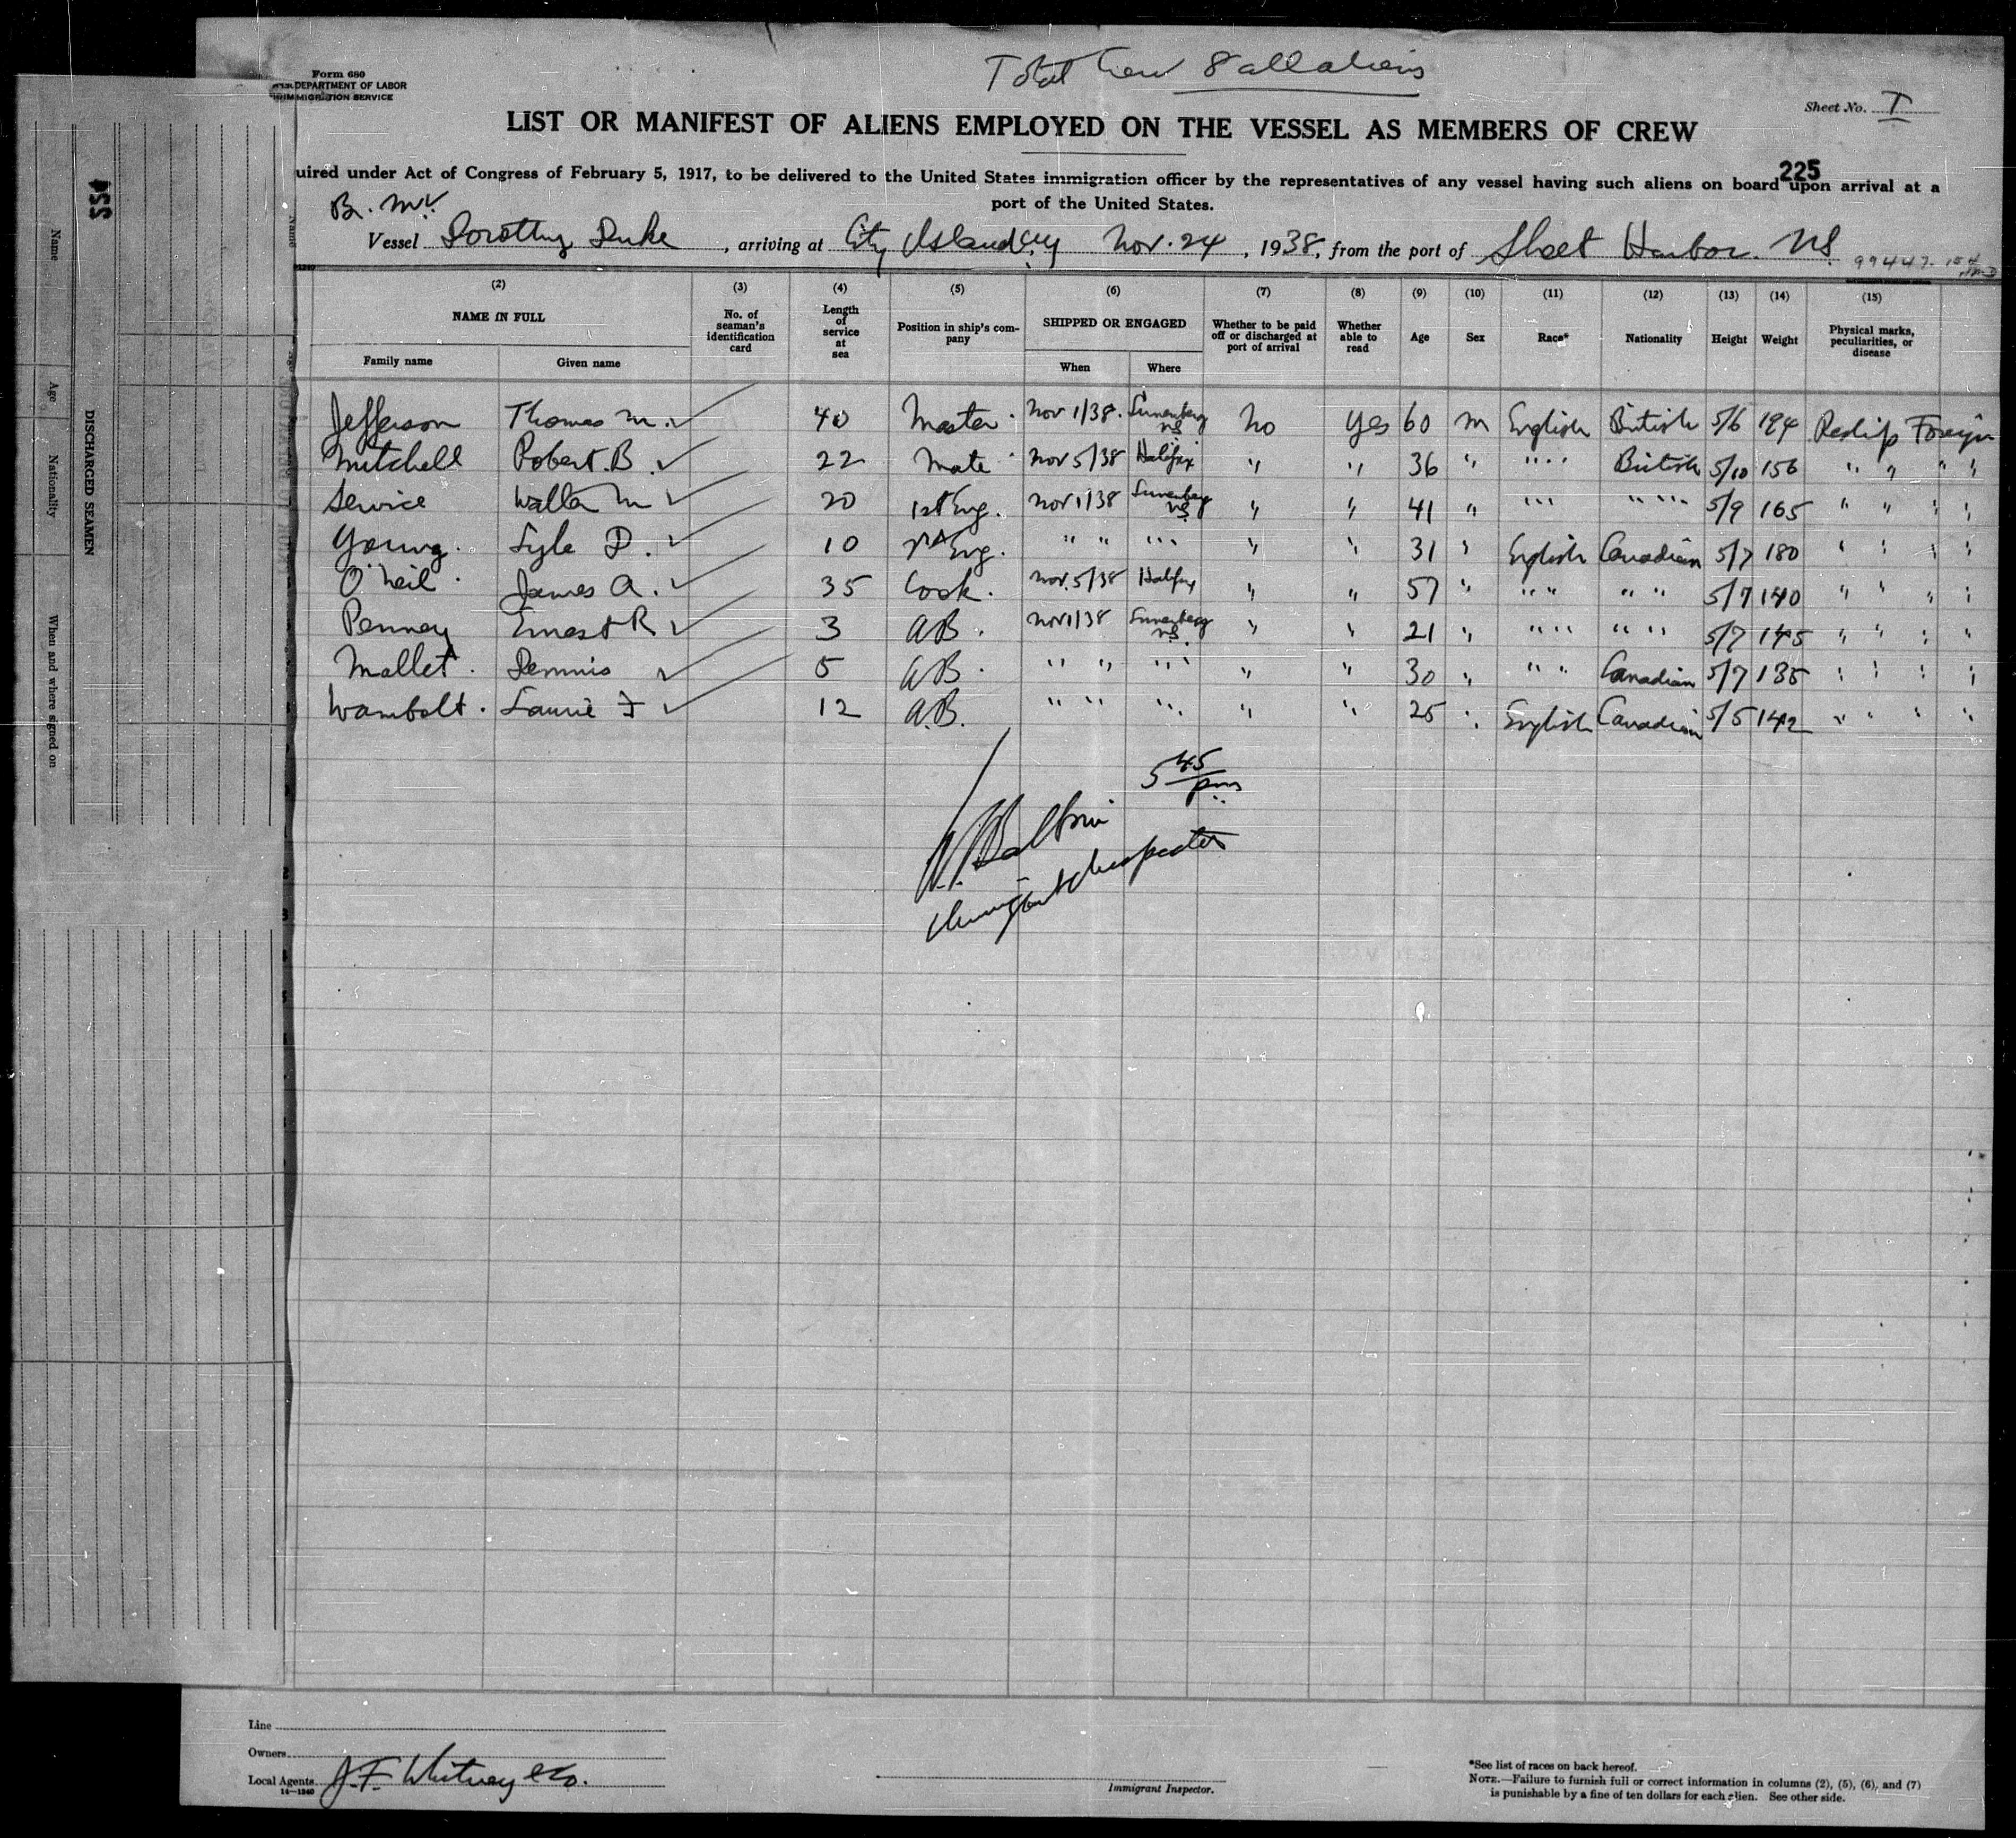 Total Crew 8 all aliens
Form 680
DEPARTMENT OF LABOR
IMMIGRATION SERVICE
Sheet No. I
LIST OR MANIFEST OF ALIENS EMPLOYED ON THE VESSEL AS MEMBERS OF CREW
225
uired under Act of Congress of February 5, 1917, to be delivered to the United States immigration officer by the representatives of any vessel having such aliens on board upon arrival at a
port of the United States.
Br. MV.
Vessel Dorothy Duke, arriving at City Island NY Nov. 24, 1938, from the port of Sheet Harbor. NS. 99447
(2) (3) (4) (5) (6) (7) (8) (9) (10) (11) (12) (13) (14) (15)
NAME IN FULL No. of seaman's identification card Length of service at sea Position in ship's com-pany SHIPPED OR ENGAGED Whether to be paid off or discharged at port of arrival Whether able to read Age Sex Race* Nationality Height Weight Physical marks, peculiarities, or disease
Family name Given name When Where
Jefferson Thomas M. 40 Master Nov 1/38. Lunenberg NS No Yes 60 M English British 5/6 184
Mitchell Robert. B. 22 Mate Nov 5/38 Halifax " " 36 " " " British 5/10 156 " " " "
Service Walter M 20 1st Eng. Nov 1/38 Lunenberg NS. " " 41 " " " " " 5/9 165 " " " "
Young. Lyle D. 10 2nd Eng. " " " " " " 31 " English Canadian 5/7 180 " " " "
O'Neil. James A. 35 Cook. Nov. 5/38 Halifax " " 57 " " " " " 5/7 140 " " " "
Penney Ernest R 3 AB. Nov 1/38 Lunenberg NS. " " 21 " " " " " 5/7 145 " " " "
Mallet. Dennis 5 AB. " " " " " " 30 " " " Canadian 5/7 135 " " " "
Wambolt. Laurie F 12 A.B. " " " " " " 25 " English Canadian 5/5 142 " " " "
5 45 pm
Immigrant Inspector
Line
Owners
Local Agents J. F. Whitney & Co.
14—1240
Immigrant Inspector.
*See list of races on back hereof.
NOTE.—Failure to furnish full or correct information in columns (2), (5), (6), and (7)
is punishable by a fine of ten dollars for each alien. See other side.
554
DISCHARGED SEAMEN
Name
Age
Nationality
When and where signed on